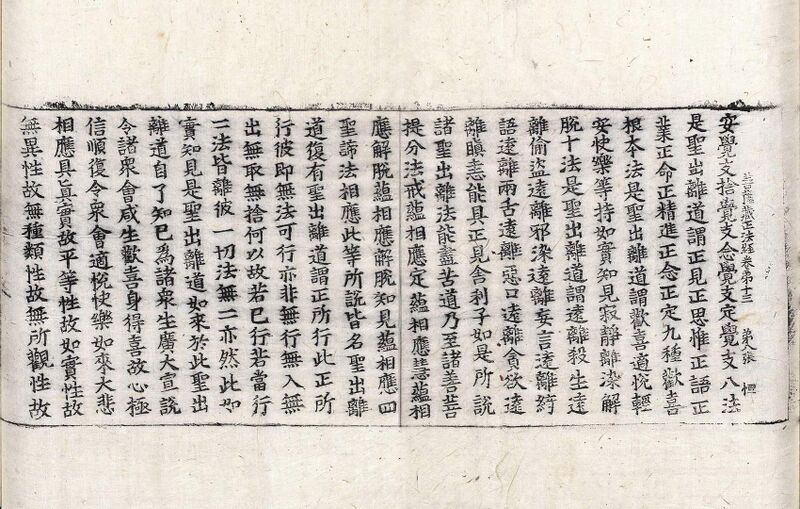 菩薩藏正法經卷第十三 第八張 恒
安覺支捨覺支念覺支定覺支八法
是聖出離道謂正見正思惟正語正
業正命正精進正念正定九種歡喜
根本法是聖出離道謂歡喜適悅輕
安快樂等持如實知見寂靜離染解
脫十法是聖出離道謂遠離殺生遠
離偷盜遠離邪染遠離妄言遠離綺
語遠離兩舌遠離惡口遠離貪欲遠
離瞋恚能具正見舍利子如是所說
諸聖出離法能盡苦道乃至諸善菩
提分法戒蘊相應定蘊相應慧蘊相
應解脫蘊相應解脫知見蘊相應四
聖諦法相應此等所說皆名聖出離
道復有聖出離道謂正所行此正所
行彼即無法可行亦非無行無入無
出無取無捨何以故若已行若當行
二法皆離彼一切法無二亦然此如
實知見是聖出離道如來於此聖出
離道自了知已爲諸衆生廣大宣說
令諸衆會咸生歡喜身得喜故心極
信順復令衆會適悅快樂如來大悲
相應具眞實故平等性故如實性故
無異性故無種類性故無所觀性故